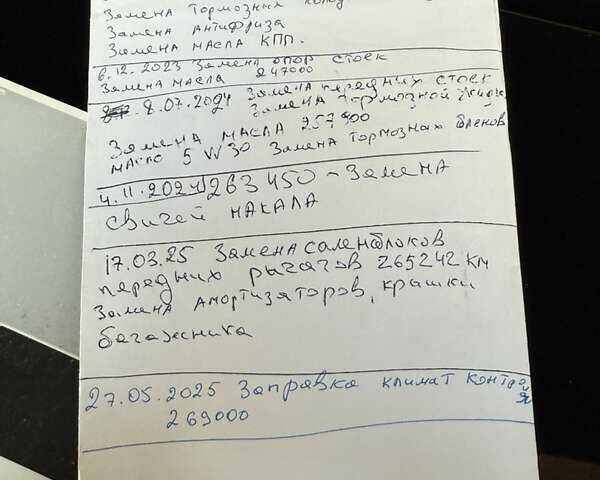 Замена Тормозных колод
Замена Антифриза
Замена масла КПП.
6.12.2023 Замена опор стоек
Замена масла 247000
8.07.2024 Замена передних стоек
Замена Тормозной жидк
Замена масла 257900
масло 5W30 Замена Тормозных
4.11.2024 263450 - Замена
Свичей накала
17.03.25 Замена саленблоков
передних рычагов 265242 км
Замена амортизяторов, крашки
багажника
27.05.2025 Заправка климат контроля
269000